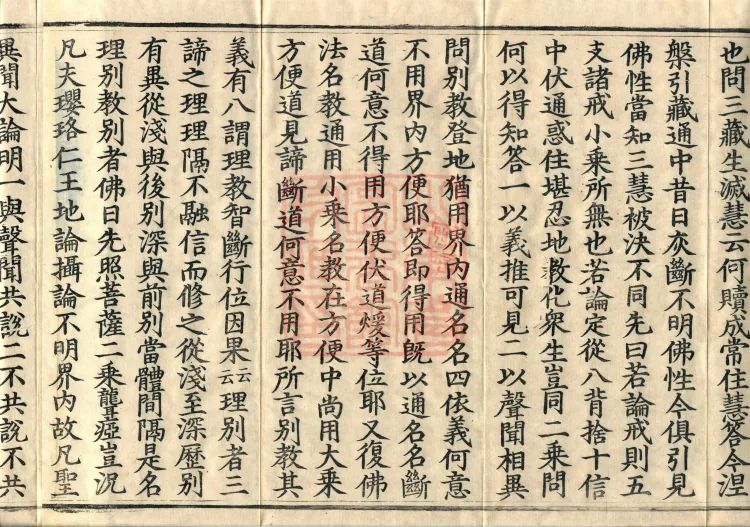 也問三藏生滅慧云何贖成常住慧答今涅
槃引藏通中昔日灰斷不明佛性今俱引見
佛性當知三慧被決不同先曰若論戒則五
支諸戒小乘所無也若論定從八背捨十信
中伏通惑住堪忍地敎化衆生豈同二乘問
何以得知答一以義推可見二以聲聞相異
問別教登地猶用界內通名名四依義何意
不用界內方便耶答即得用旣以通名名斷
道何意不得用方便伏道煖等位耶又復佛
法名教通用小乘名教在方便中尚用大乘
方便道見諦斷道何意不用耶所言別教其
義有八謂理教智斷行位因果云云理別者三
諦之理理隔不融信而修之從淺至深歷別
有異從淺與後別深與前別當體間隔是名
理別教別者佛日先照菩薩二乘聾瘂豈況
凡夫瓔珞仁王地論攝論不明界內故凡聖
異聞大論明一與聲聞共說二不共說不共